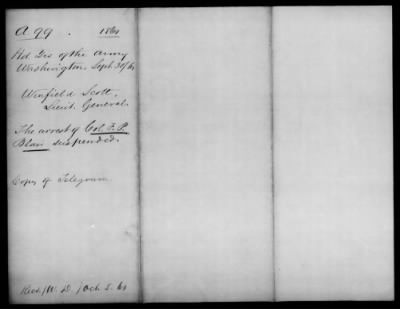 A 99. 1861
Hd. Qrs of the Army
Washington, Sept. 30/61
Winfield Scott,
Lieut. General.
The arrest of Col. F. P.
Blair suspended.
Copy of Telegram.
Recd (W. D.) Oct. 2. 61